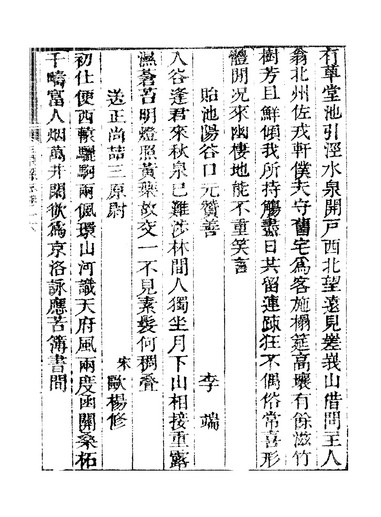 有草堂池引涇水泉開戸西北望遠見嵳峩山借問主人
翁北州佐戎軒僕夫守舊宅爲客施榻筵高壤有餘滋竹
樹芳且鮮傾我所持觴盡日共留連踈狂不偶俗常喜形
體閒況來幽棲地能不重笑言
貽池陽谷口元贊善 李端
入谷逢君來秋泉已難莎林間人獨坐月下山相接重露
濕蒼苔明燈照黃葉故交一不見素髮何稠疊
送正尚喆三原尉 宋歐楊修
初仕便西轅驪駒兩佩環山河識天府風雨度函關桑柘
千疇富人烟萬井閑欲爲京洛詠應苦簿書間